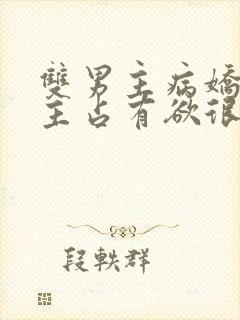 雙男主病嬌
主占有欲很
段軼群